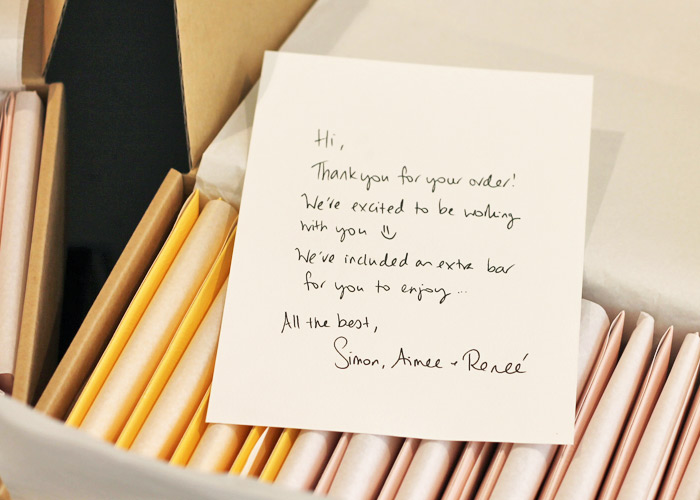 Hi,
Thank you for your order!
We're excited to be working
with you :)
We've included an extra bar
for you to enjoy...
All the best,
Simon, Aimee + Reneé